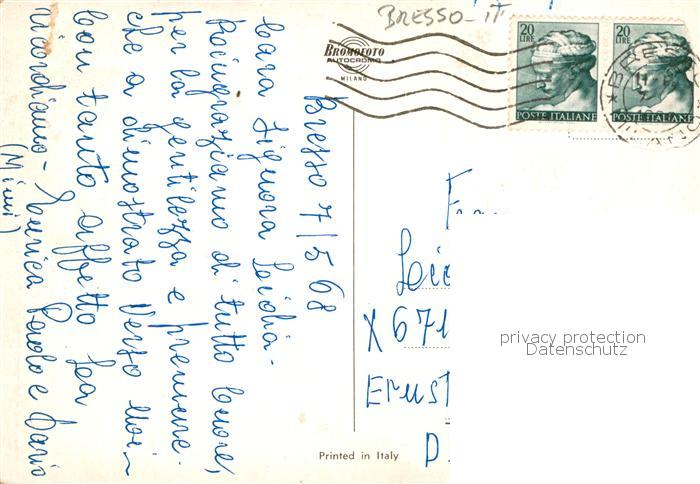 BRESSO - IT
BROMOFOTO
AUTOCROMO
MILANO
20 LIRE
POSTE ITALIANE
20 LIRE
POSTE ITALIANE
Bresso 7/5 68
Cara Signora
Ringraziamo di tutto cuore,
per la gentilezza e premure
che a dimostrato verso noi
Con tanto affetto
ricordiamo - Enrica Paolo e Dario
(Mimi)
X 671
Ernst
D.
privacy protection
Datenschutz
Printed in Italy